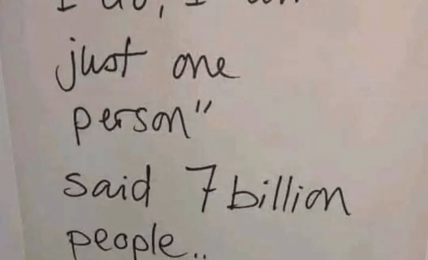 just one
person"
said 7 billion
people..